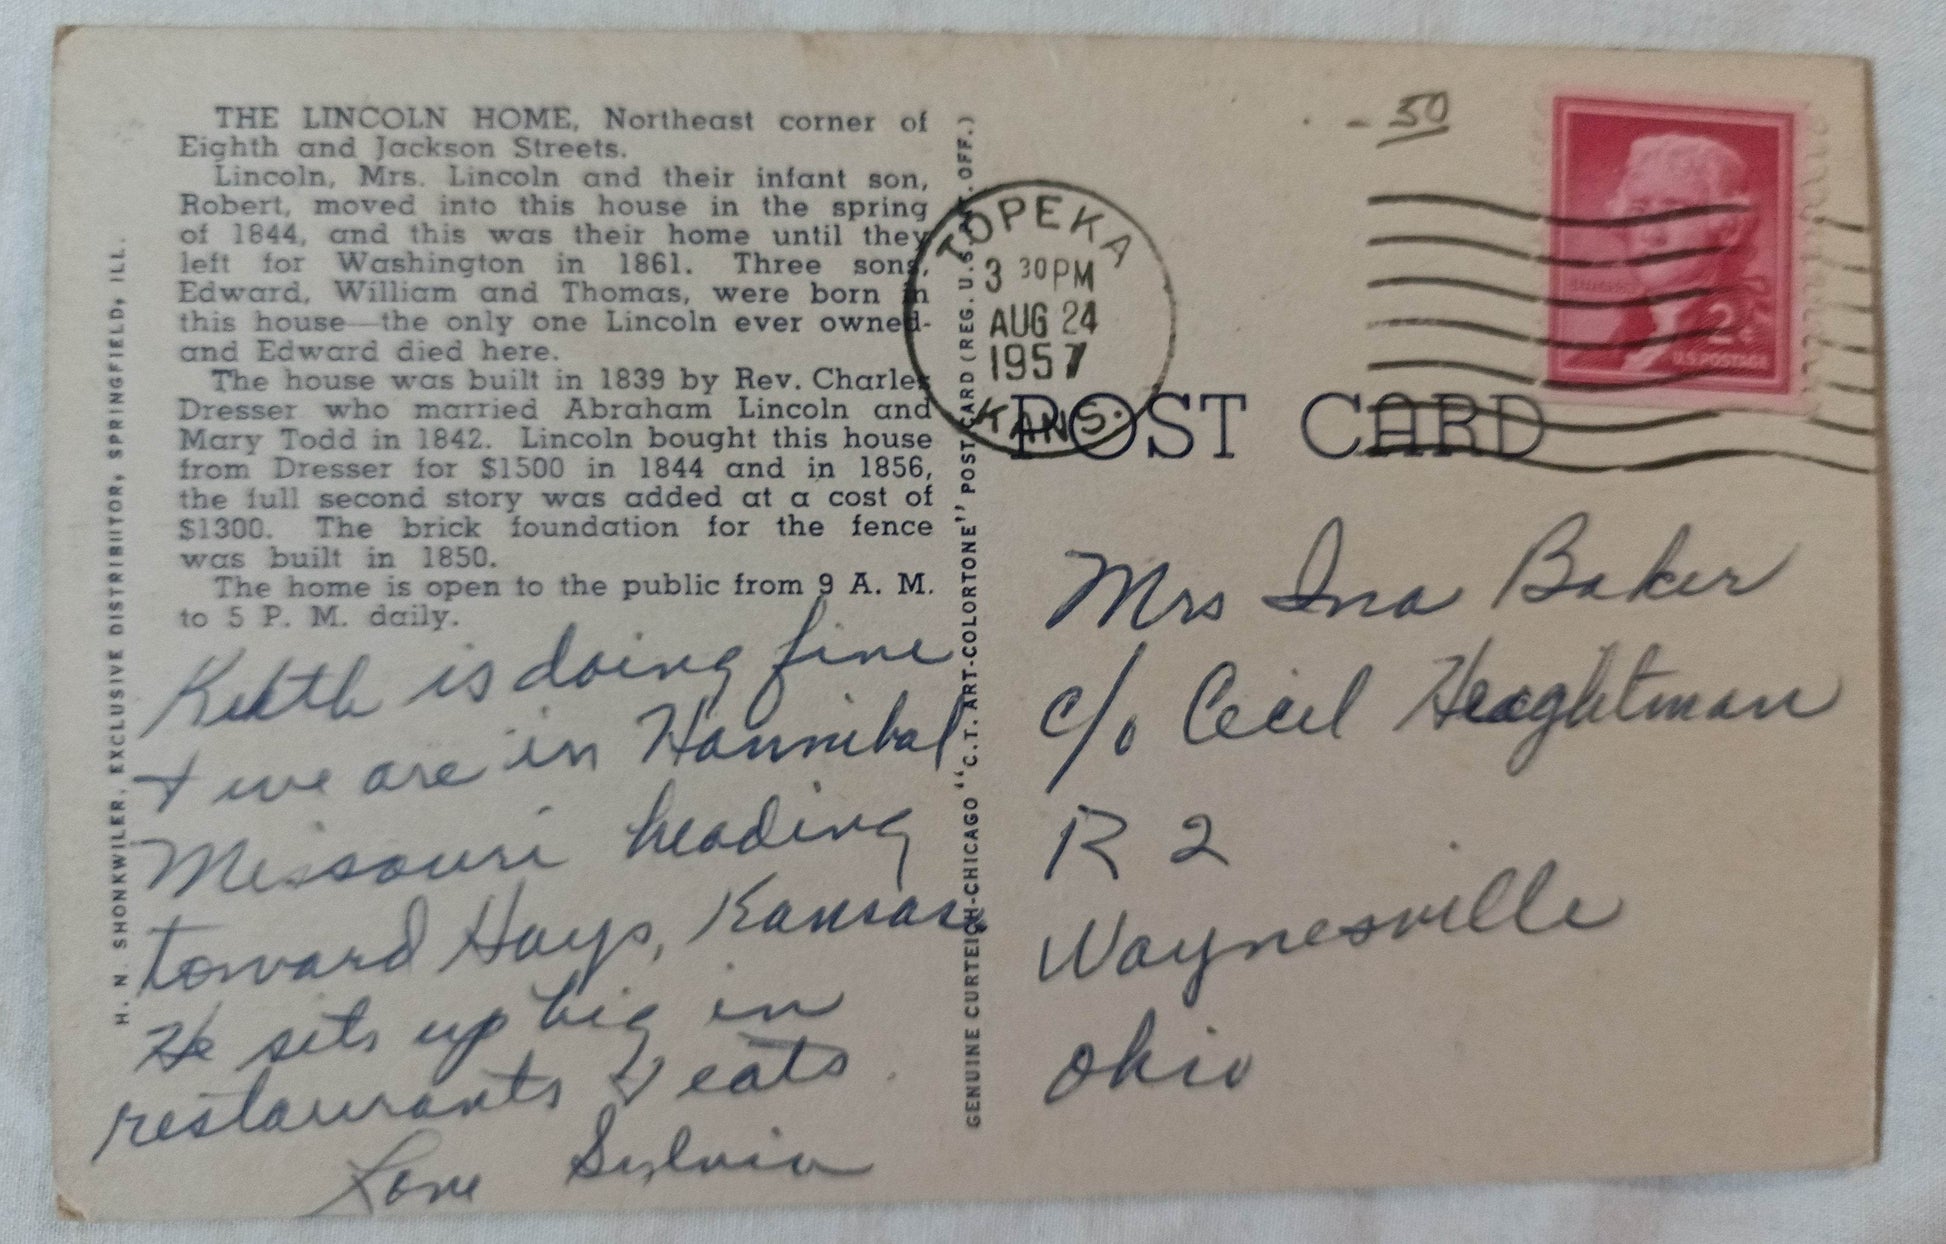 THE LINCOLN HOME, Northeast corner of
Eighth and Jackson Streets.
Lincoln, Mrs. Lincoln and their infant son,
Robert, moved into this house in the spring
of 1844, and this was their home until they
left for Washington in 1861. Three sons,
Edward, William and Thomas, were born in
this house—the only one Lincoln ever owned-
and Edward died here.
The house was built in 1839 by Rev. Charles
Dresser who married Abraham Lincoln and
Mary Todd in 1842. Lincoln bought this house
from Dresser for $1500 in 1844 and in 1856,
the full second story was added at a cost of
$1300. The brick foundation for the fence
was built in 1850.
The home is open to the public from 9 A. M.
to 5 P. M. daily.
Keith is doing fine
+ we are in Hannibal
Missouri heading
toward Hays, Kansas.
He sits up big in
restaurants & eats.
Love Sylvia
H. N. SHONKWILER, EXCLUSIVE DISTRIBUTOR, SPRINGFIELD, ILL.
GENUINE CURTEICH-CHICAGO "C.T. ART-COLORTONE" POST CARD (REG. U.S. PAT. OFF.)
- 50
TOPEKA
3 30 PM
AUG 24
1957
KANS.
2¢
U.S. POSTAGE
POST CARD
Mrs Ina Baker
c/o Cecil Heaghtman
R 2
Waynesville
Ohio